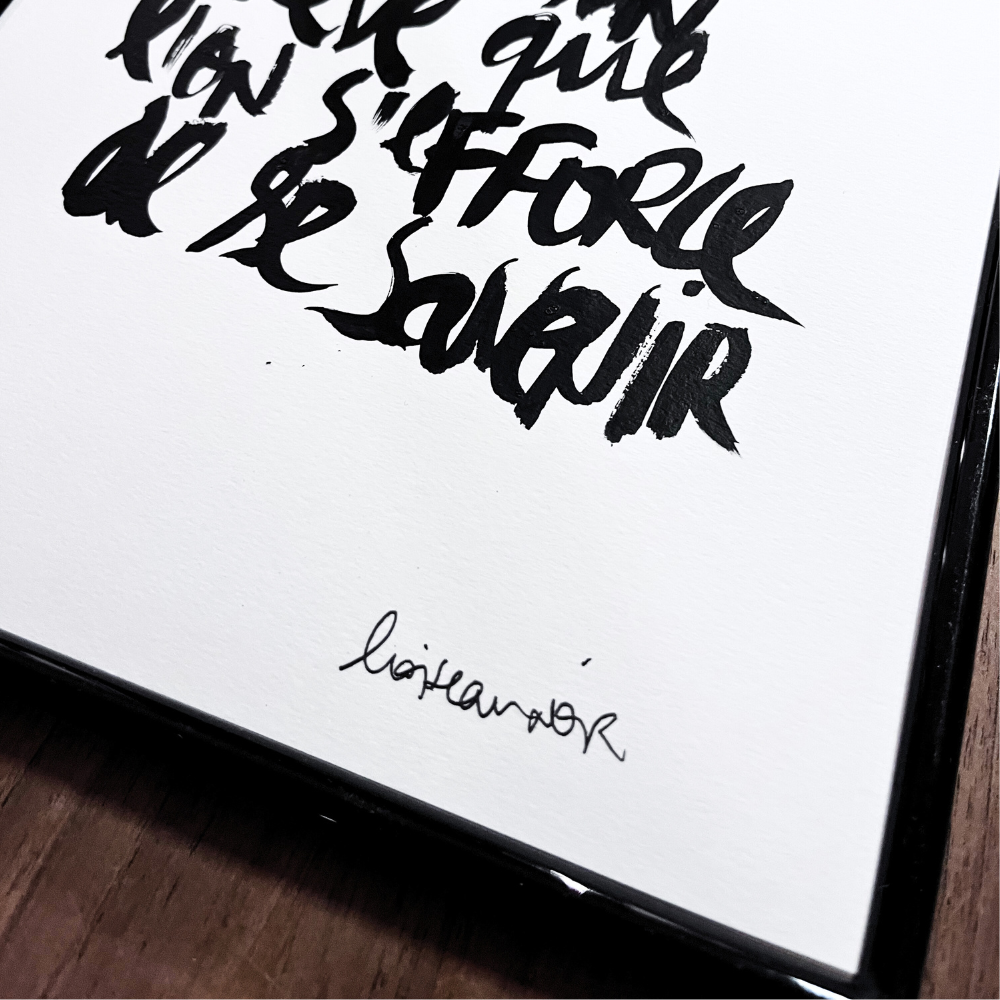 que
l'on s'efforce
de se souvenir
loiseaunoir